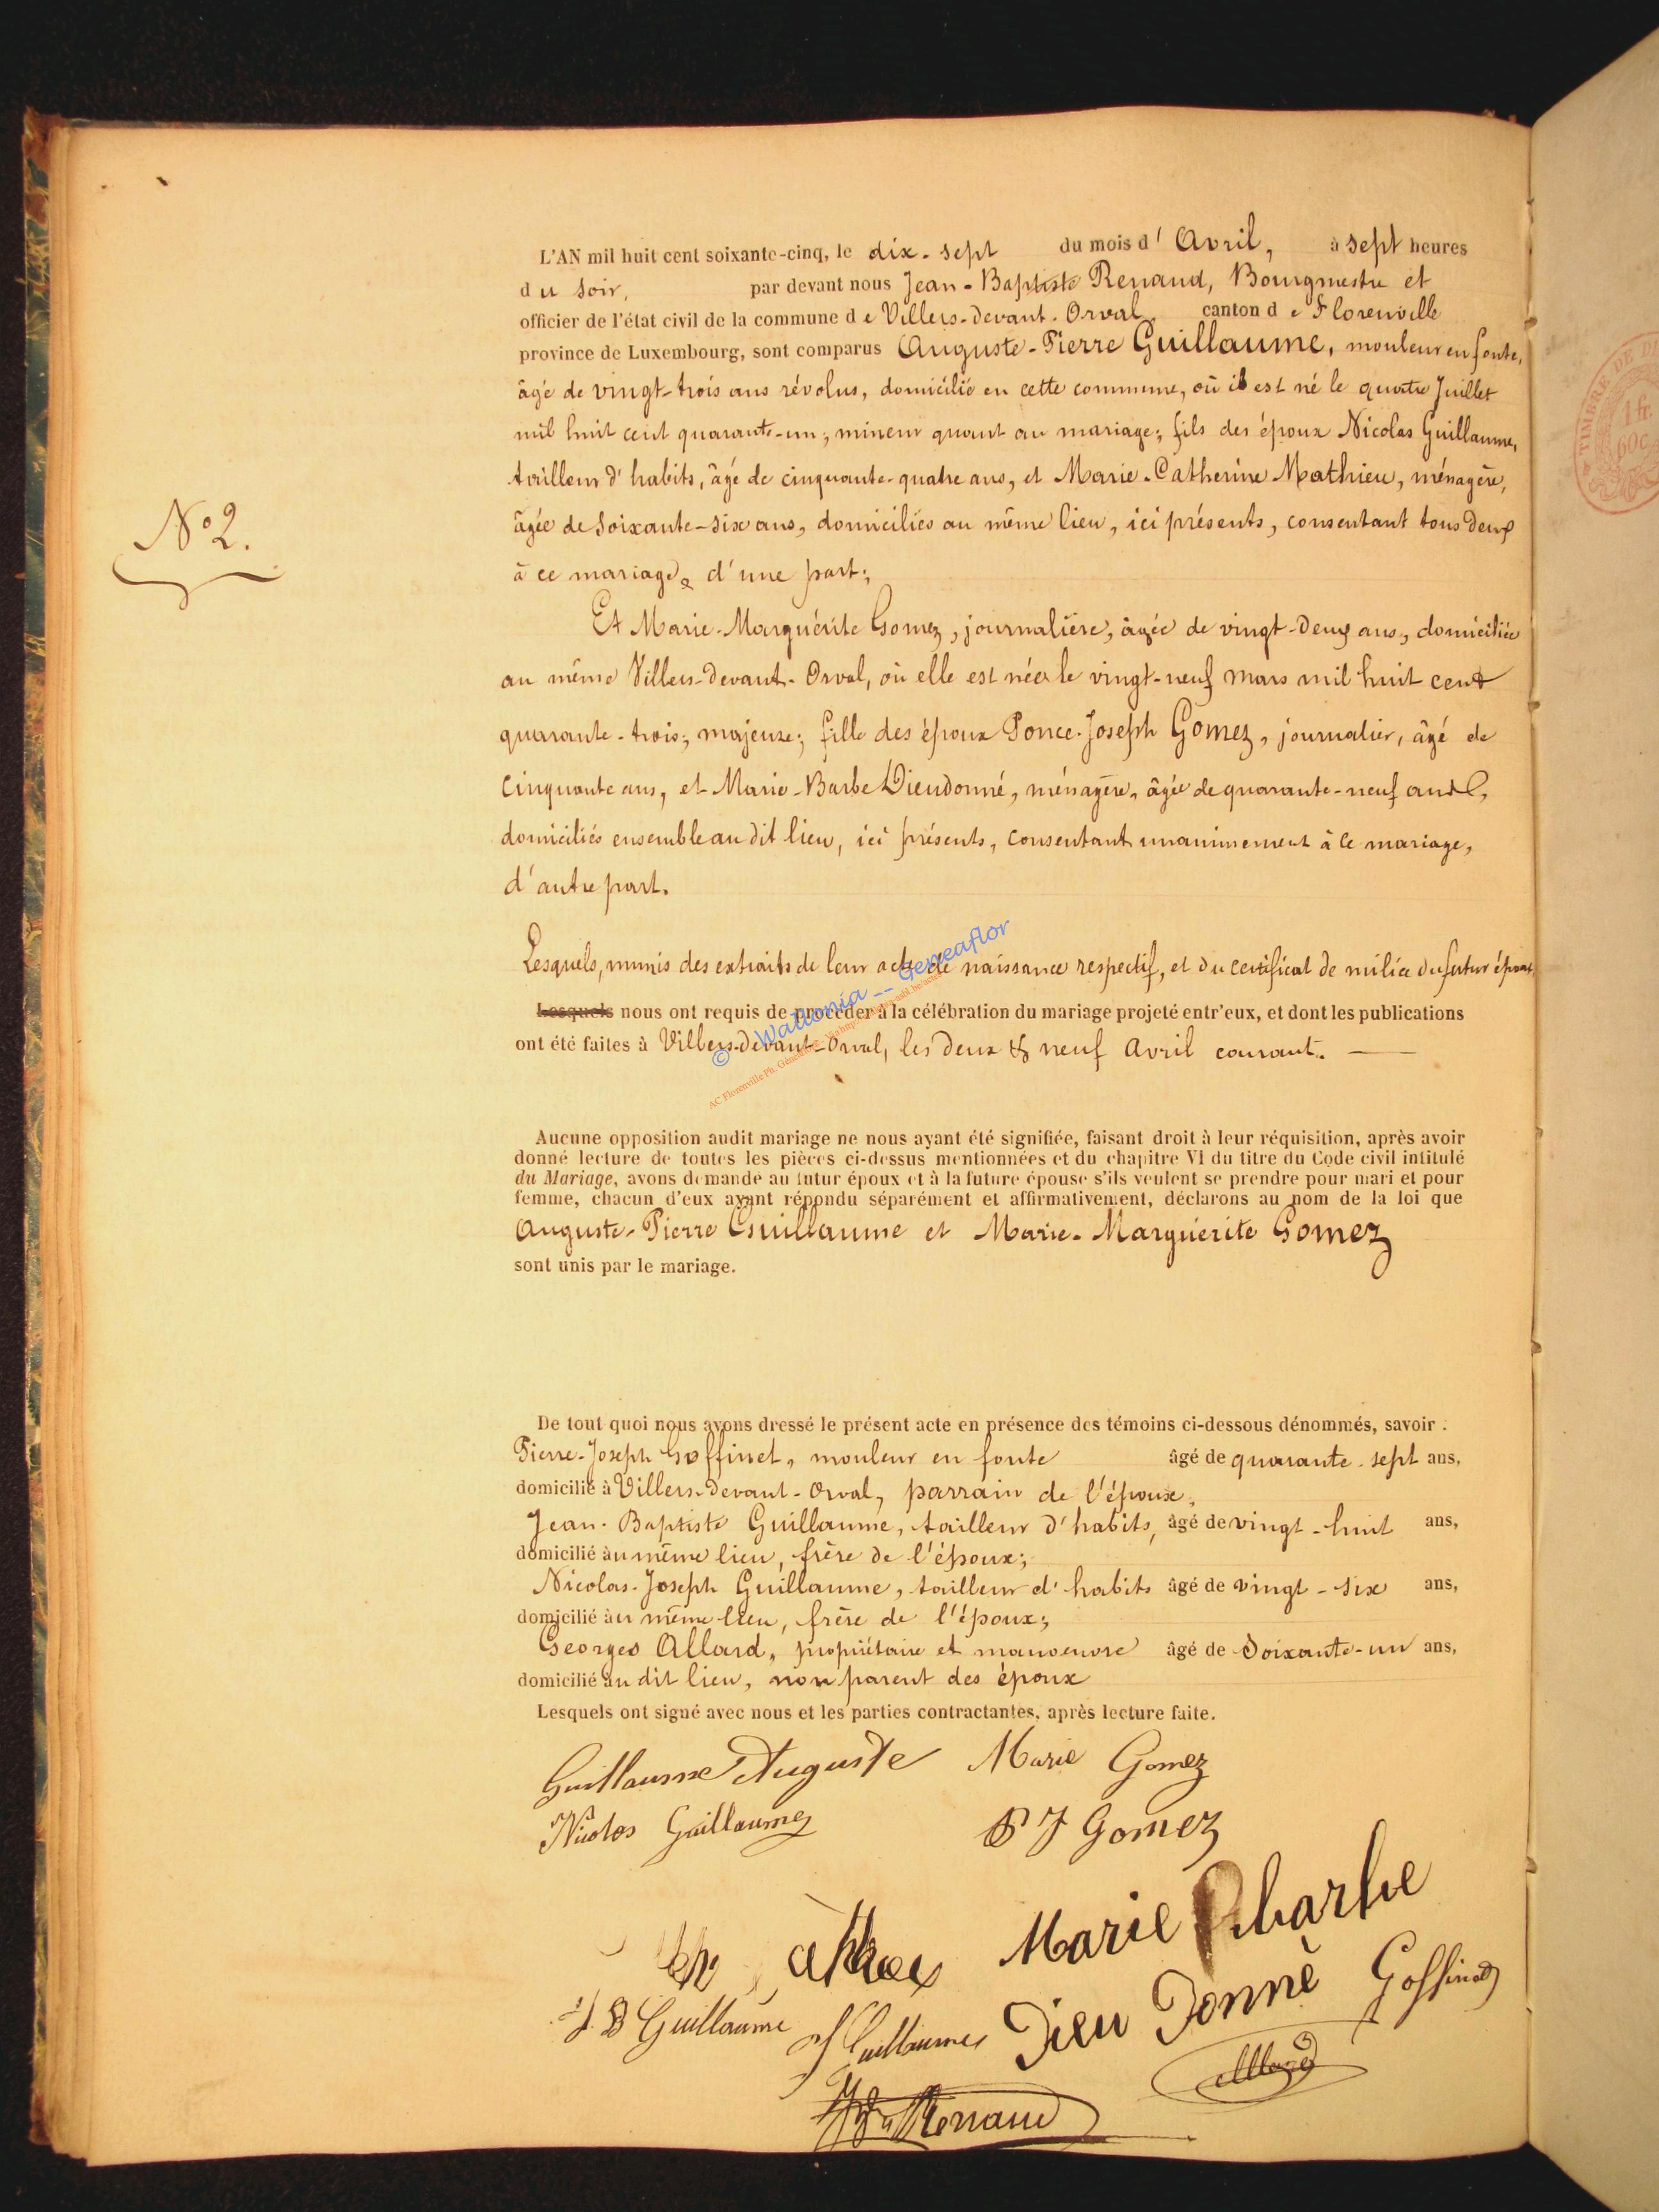 L'AN mil huit cent soixante-cinq, le dix-sept du mois d' Avril, à sept heures
du soir, par devant nous Jean-Baptiste Renaud, Bourgmestre et
officier de l'état civil de la commune de Villers-devant-Orval, canton de Florenville
province de Luxembourg, sont comparus Auguste-Pierre Guillaume, mouleur en fonte,
âgé de vingt-trois ans révolus, domicilié en cette commune, où il est né le quatre Juillet
mil huit cent quarante-un; mineur quant au mariage; fils des époux Nicolas Guillaume,
tailleur d'habits, âgé de cinquante-quatre ans, et Marie-Catherine Mathieu, ménagère,
âgée de soixante-six ans, domiciliés au même lieu, ici présents, consentant tous deux
à ce mariage, d'une part;
N° 2.
Et Marie-Marguérite Gomez, journalière, âgée de vingt-deux ans, domiciliée
au même Villers-devant-Orval, où elle est née le vingt-neuf mars mil huit cent
quarante-trois; majeure; fille des époux Ponce-Joseph Gomez, journalier, âgé de
cinquante ans, et Marie-Barbe Dieudonné, ménagère, âgée de quarante-neuf ans,
domiciliés ensemble au dit lieu, ici présents, consentant unanimement à ce mariage,
d'autre part.
Lesquels, munis des extraits de leur acte de naissance respectif, et du certificat de milice du futur époux,
Lesquels nous ont requis de procéder à la célébration du mariage projeté entr'eux, et dont les publications
ont été faites à Villers-devant-Orval, les deux & neuf Avril courant.
© Wallonia -- Geneaflor
AC Florenville Ph. Généa
Aucune opposition audit mariage ne nous ayant été signifiée, faisant droit à leur réquisition, après avoir
donné lecture de toutes les pièces ci-dessus mentionnées et du chapitre VI du titre du Code civil intitulé
du Mariage, avons demandé au futur époux et à la future épouse s'ils veulent se prendre pour mari et pour
femme, chacun d'eux ayant répondu séparément et affirmativement, déclarons au nom de la loi que
Auguste-Pierre Guillaume et Marie-Marguérite Gomez
sont unis par le mariage.
De tout quoi nous avons dressé le présent acte en présence des témoins ci-dessous dénommés, savoir :
Pierre-Joseph Goffinet, mouleur en fonte âgé de quarante-sept ans,
domicilié à Villers-devant-Orval, parrain de l'époux,
Jean-Baptiste Guillaume, tailleur d'habits, âgé de vingt-huit ans,
domicilié au même lieu, frère de l'époux;
Nicolas-Joseph Guillaume, tailleur d'habits âgé de vingt-six ans,
domicilié au même lieu, frère de l'époux;
Georges Allard, propriétaire et manoeuvre âgé de soixante-un ans,
domicilié au dit lieu, non parent des époux
Lesquels ont signé avec nous et les parties contractantes, après lecture faite.
Guillaume Auguste Marie Gomez
Nicolas Guillaume P J Gomez
Marie Barbe
J B Guillaume Guillaume Dieu Donné Goffinet
Allard
Renaud
TIMBRE DE
1 fr.
60c